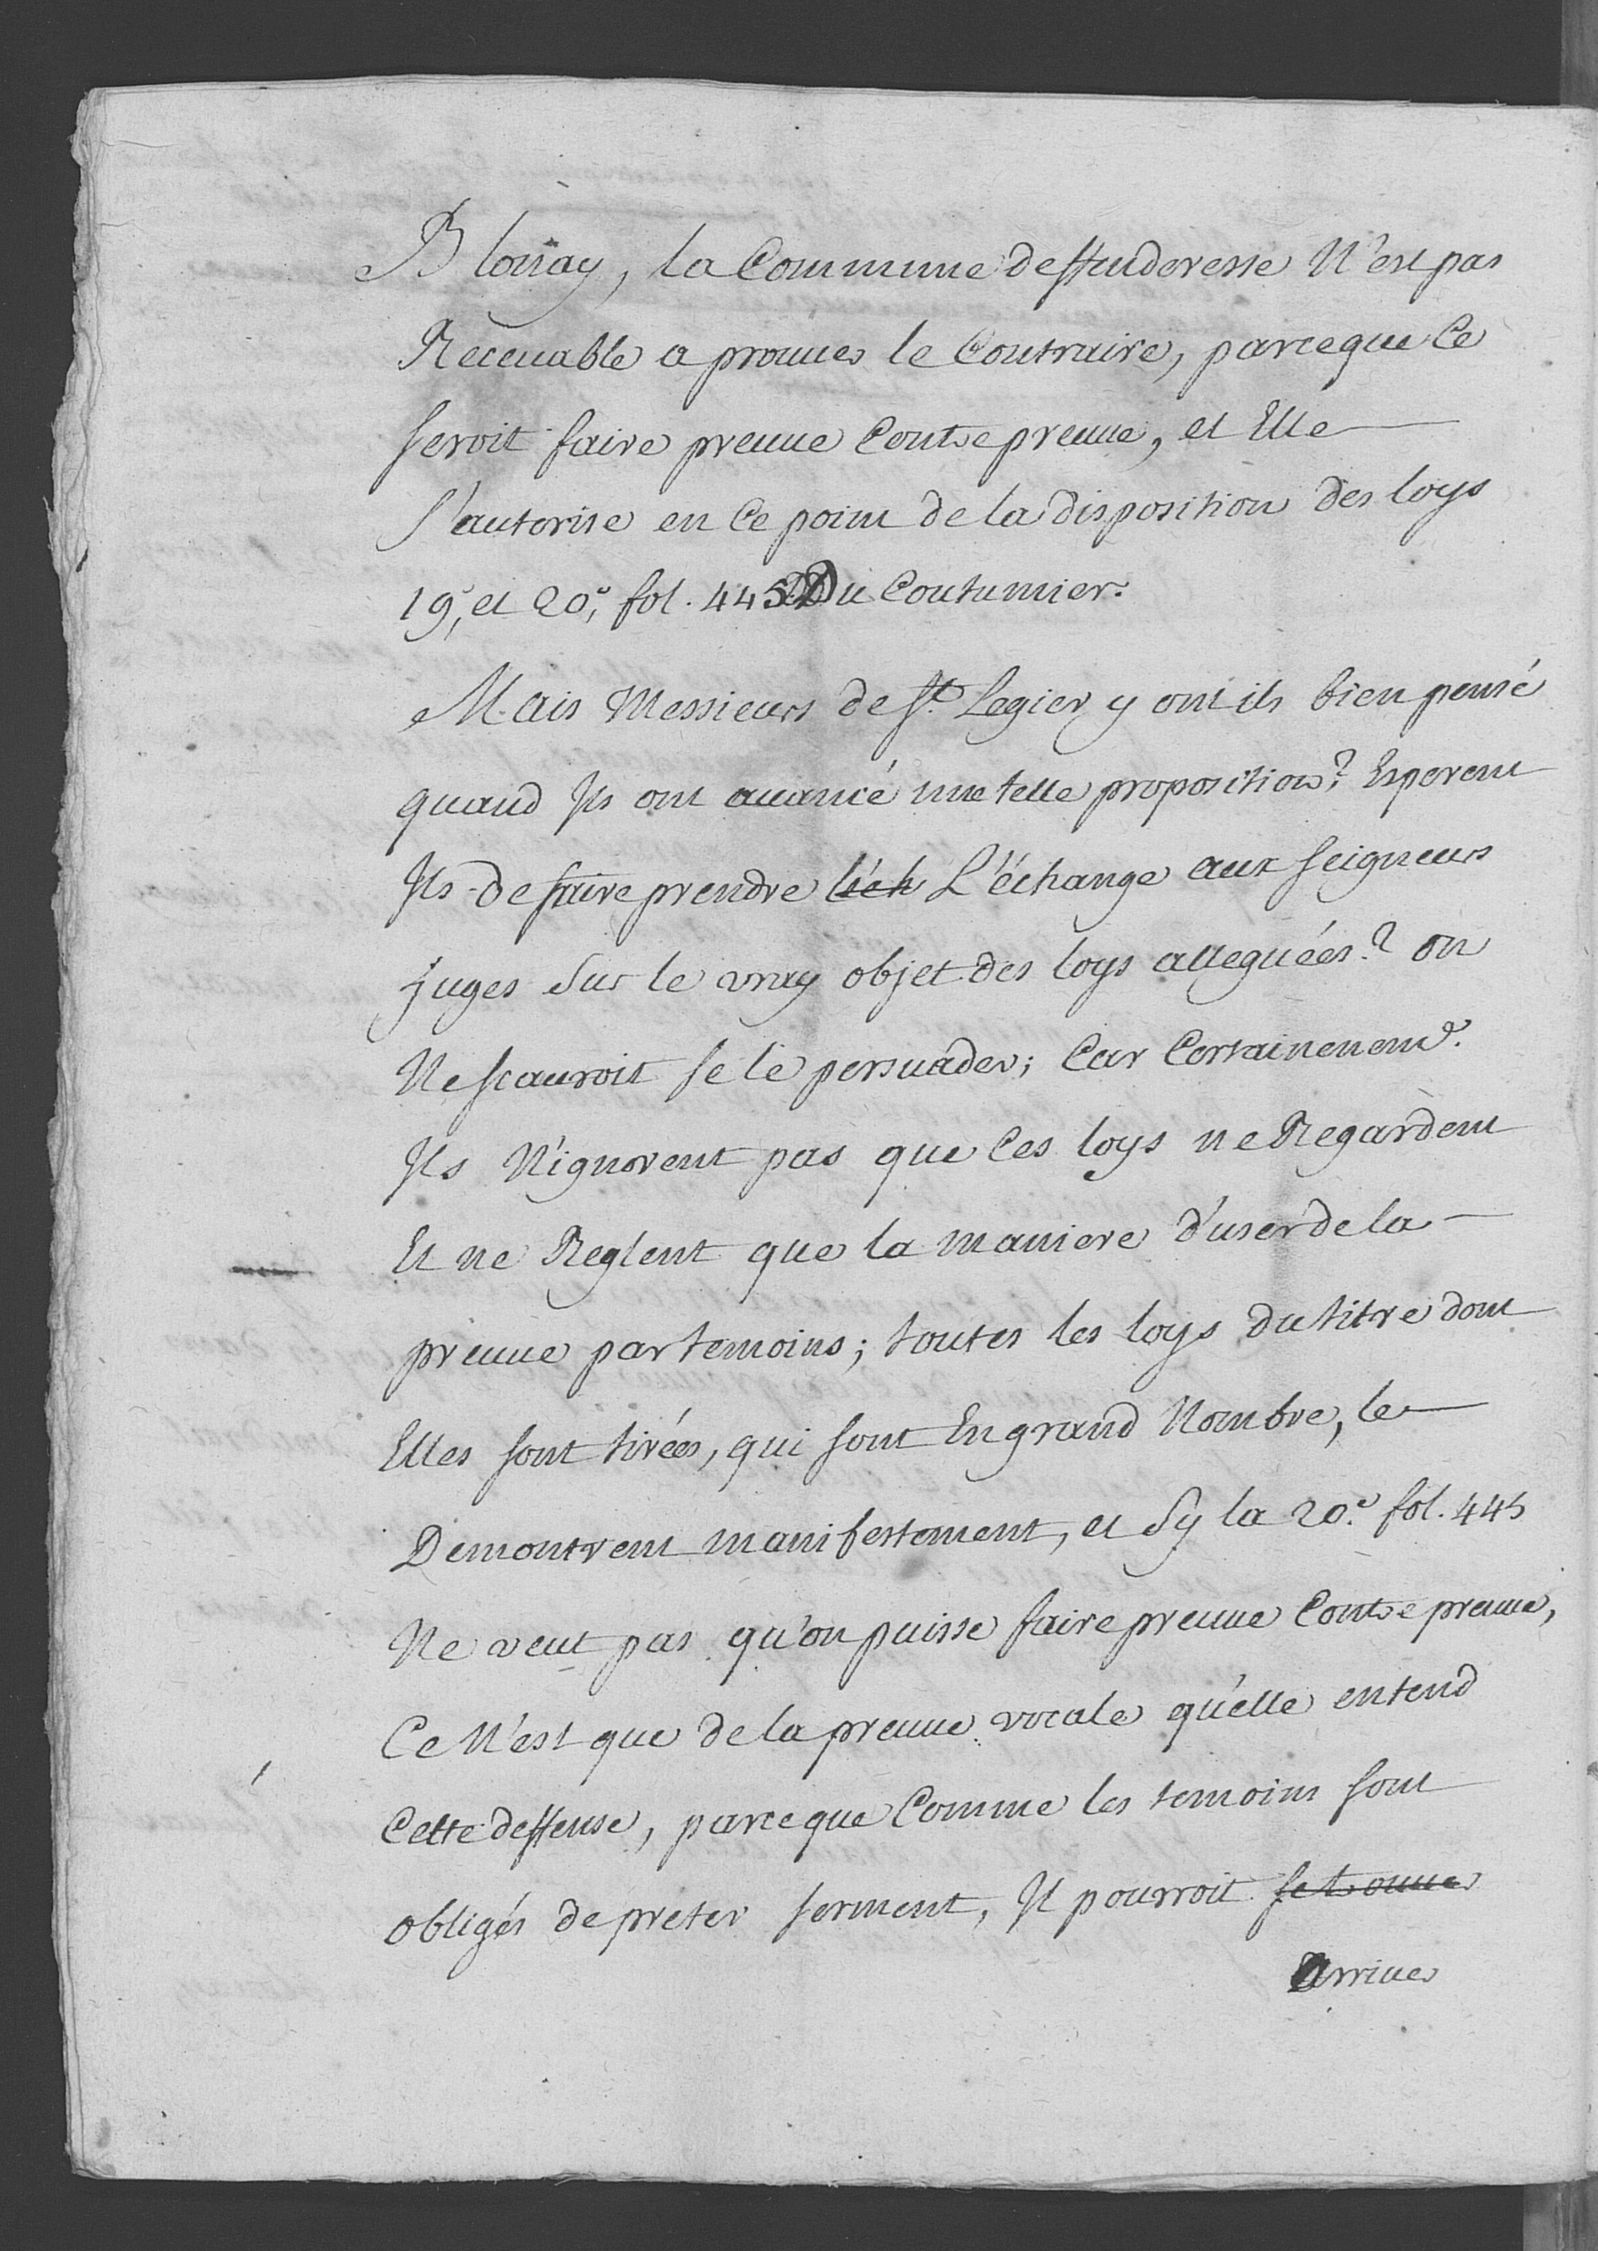 Blonay, la Commune deffenderesse N'est pas
Receuable a prouuer le Contraire, parceque Ce
seroit faire preuue Contre preuue, et Elle
s'autorise en Ce point de la disposition des loys
19e, et 20e, fol. 445 Du Coutumier.
Mais Messieurs de St. Legier y ont ils bien pensé
quand Ils ont auancé une telle proposition? Esperent
Ils de faire prendre l'éch L'échange aux seigneurs
juges sur le vray objet des loys alleguées? on
Ne scauroit se le persuader; Car Certainenent.
Ils N'ignorent pas que Ces loys ne Regardent
Et ne Reglent que la maniere d'user de la
preuue par temoins; toutes les loys du titre dont
Elles sont tirées, qui sont En grand Nombre, le
Demontrent manifestement, et Sy la 20e. fol. 445
Ne veut pas qu'on puisse faire preuue Contre preuue,
Ce N'est que de la preuue vocale qu'elle entend
Cette deffense, parceque Comme les temoins sont
obligés de preter serment, Il pourroit se trouuer
Arriuer